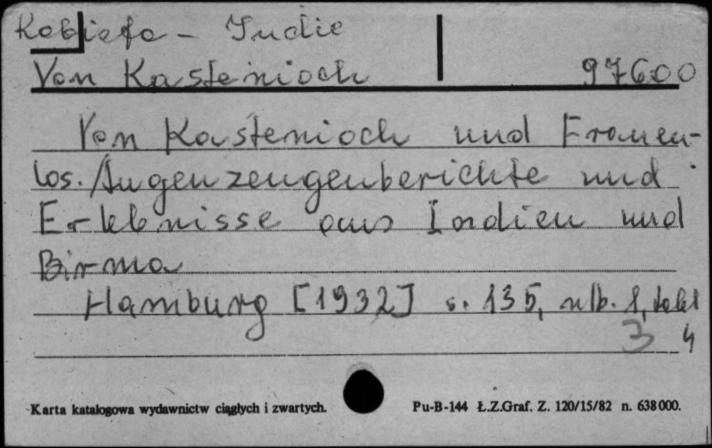 Kobieta - Indie
Von Kastenioch 97600
Von Kastenioch und Frauen-
los. Augenzeugenberichte und
Erlebnisse aus Indien und
Birma
Hamburg [1932] s. 135, nlb. 1, tabl
3 4
Karta katalogowa wydawnictw ciągłych i zwartych. Pu-B-144 Ł.Z.Graf. Z. 120/15/82 n. 638000.